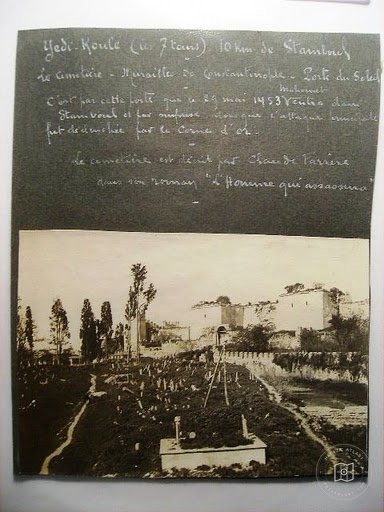 Yedi-Koulé (les 7 tours) 10 km de Stamboul
Le Cimetière - Muraille de Constantinople - Porte du Soleil
Mahomet
C'est par cette porte que le 29 mai 1453 dans
Stamboul et par l'attaque principale
fut déclenchée par la Corne d'or.
Le cimetière est décrit par Claude Farrère
dans son roman "L'Homme qui assassina"